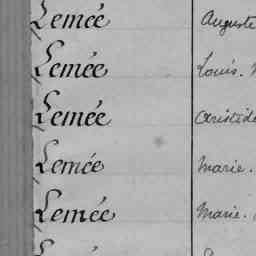 Lemée Auguste
Lemée Louis.
Lemée Aristide
Lemée Marie.
Lemée Marie.